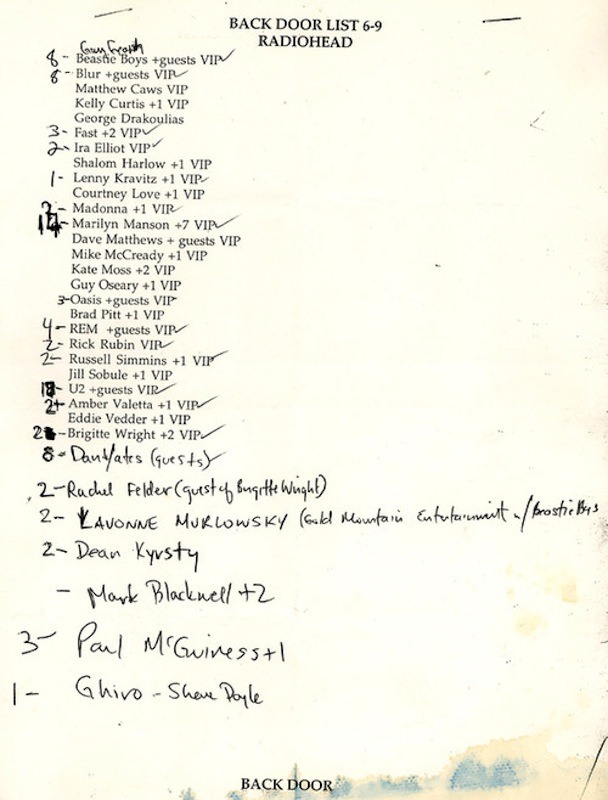 BACK DOOR LIST 6-9
RADIOHEAD
8- Beastie Boys +guests VIP✓
8- Blur +guests VIP✓
Matthew Caws VIP
Kelly Curtis +1 VIP
George Drakoulias
3- Fast +2 VIP✓
2- Ira Elliot VIP✓
Shalom Harlow +1 VIP
1- Lenny Kravitz +1 VIP✓
Courtney Love +1 VIP
Madonna +1 VIP✓
Marilyn Manson +7 VIP✓
Dave Matthews + guests VIP
Mike McCready +1 VIP
Kate Moss +2 VIP
Guy Oseary +1 VIP
3-Oasis +guests VIP
Brad Pitt +1 VIP
4- REM +guests VIP✓
2- Rick Rubin VIP✓
2- Russell Simmins +1 VIP✓
Jill Sobule +1 VIP
U2 +guests VIP✓
2- Amber Valetta +1 VIP✓
Eddie Vedder +1 VIP
Brigitte Wright +2 VIP✓
8- (guests)
2- Rachel Felder (guest of Brigitte Wright)
2- LAVONNE MURLOWSKY (Gold Mountain Entertainment w/Beastie Boys
2- Dean Kyrsty
- Mark Blackwell +2
3- Paul McGuiness+1
1- Ghiro - Shane Doyle
BACK DOOR